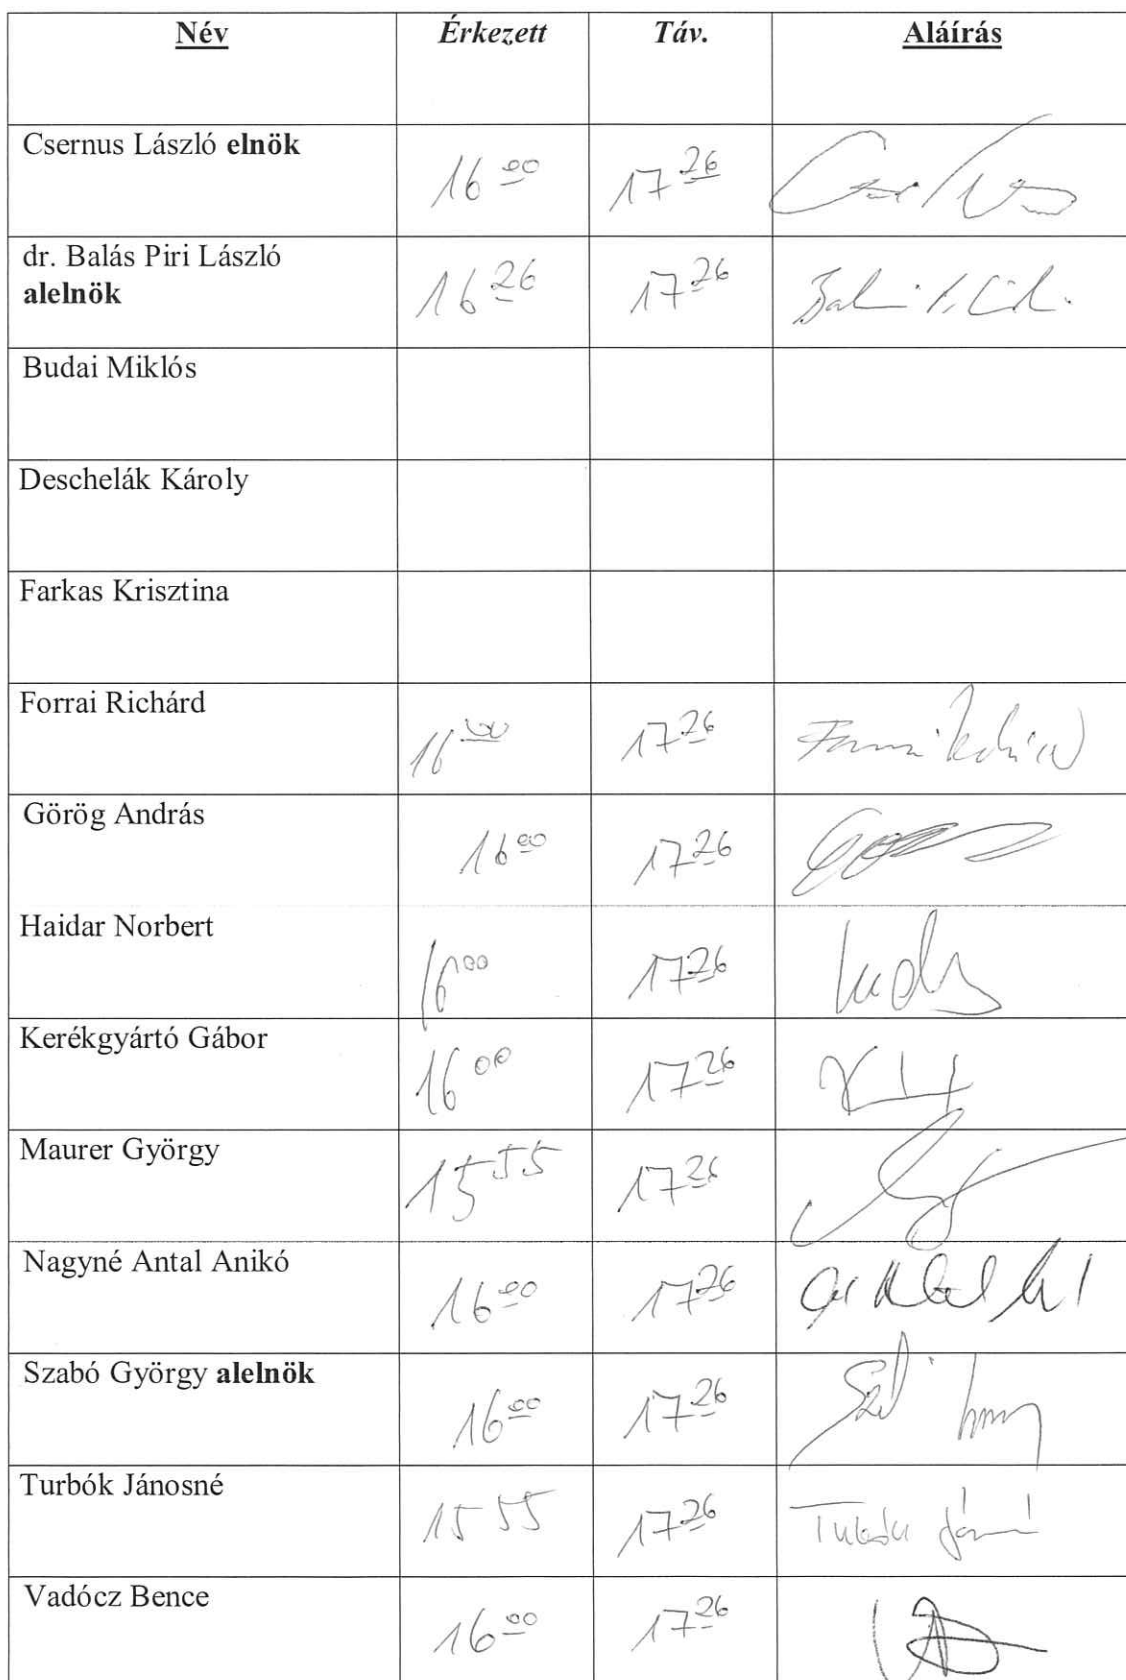 Név Érkezett Táv. Aláírás
Csernus László elnök 16 00 17 26
dr. Balás Piri László
alelnök 16 26 17 26
Budai Miklós
Deschelák Károly
Farkas Krisztina
Forrai Richárd 16 00 17 26
Görög András 16 00 17 26
Haidar Norbert 16 00 17 26
Kerékgyártó Gábor 16 00 17 26
Maurer György 15 55 17 26
Nagyné Antal Anikó 16 00 17 26
Szabó György alelnök 16 00 17 26
Turbók Jánosné 15 55 17 26
Vadócz Bence 16 00 17 26